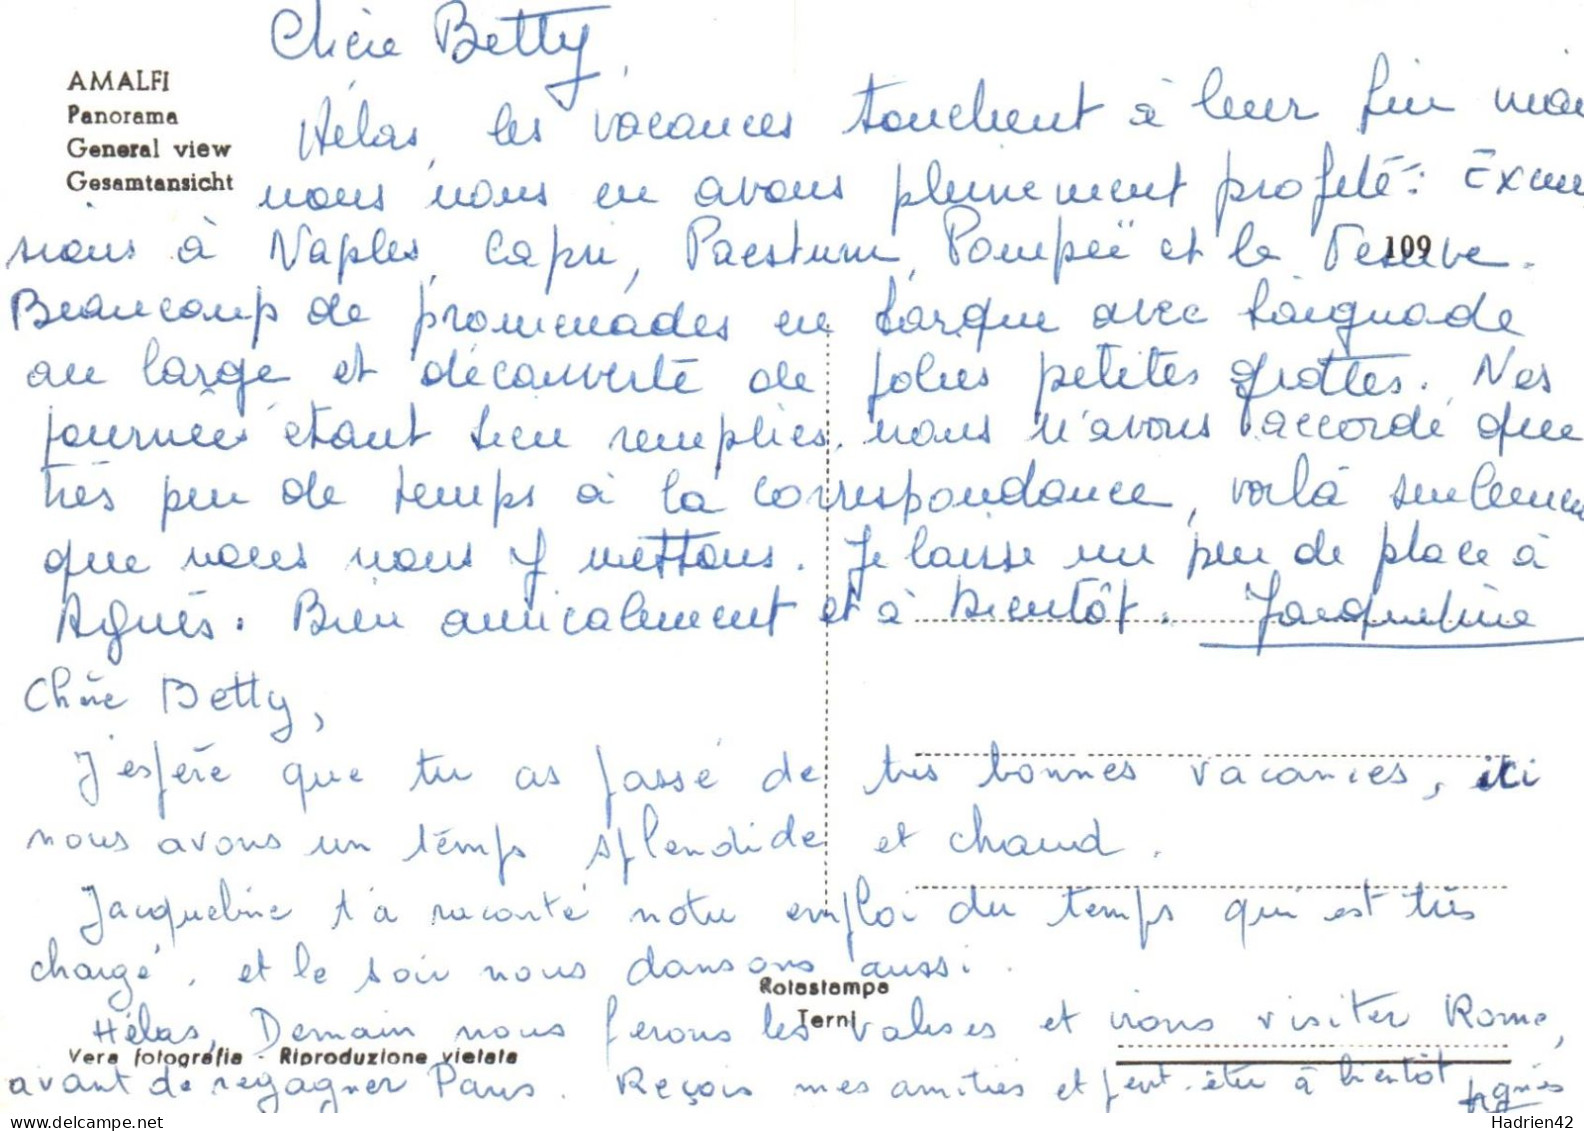 Chère Betty,
AMALFI
Panorama
General view
Gesamtansicht
Hélas, les vacances touchent à leur fin mai
nous nous en avons pleinement profité : Excur
sions à Naples, Capri, Paestum, Pompéï et le Vésuve.
109
Beaucoup de promenades en barque avec baignade
au large et découverte de jolies petites grottes. Nos
journées étant bien remplies, nous n'avons accordé que
très peu de temps à la correspondance, voilà seulemen
que nous nous y mettons. Je laisse un peu de place à
Agnès. Bien amicalement et à bientôt. Jacqueline
Chère Betty,
J'espère que tu as passé de très bonnes vacances, ici
nous avons un temps splendide et chaud.
Jacqueline t'a raconté notre emploi du temps qui est très
chargé, et le soir nous dansons aussi.
Rotastampa
Terni
Hélas, Demain nous ferons les valises et irons visiter Rome,
Vera fotografia - Riproduzione vietata
avant de regagner Paris. Reçois mes amitiés et peut-être à bientôt Agnès
delcampe.net
Hadrien42